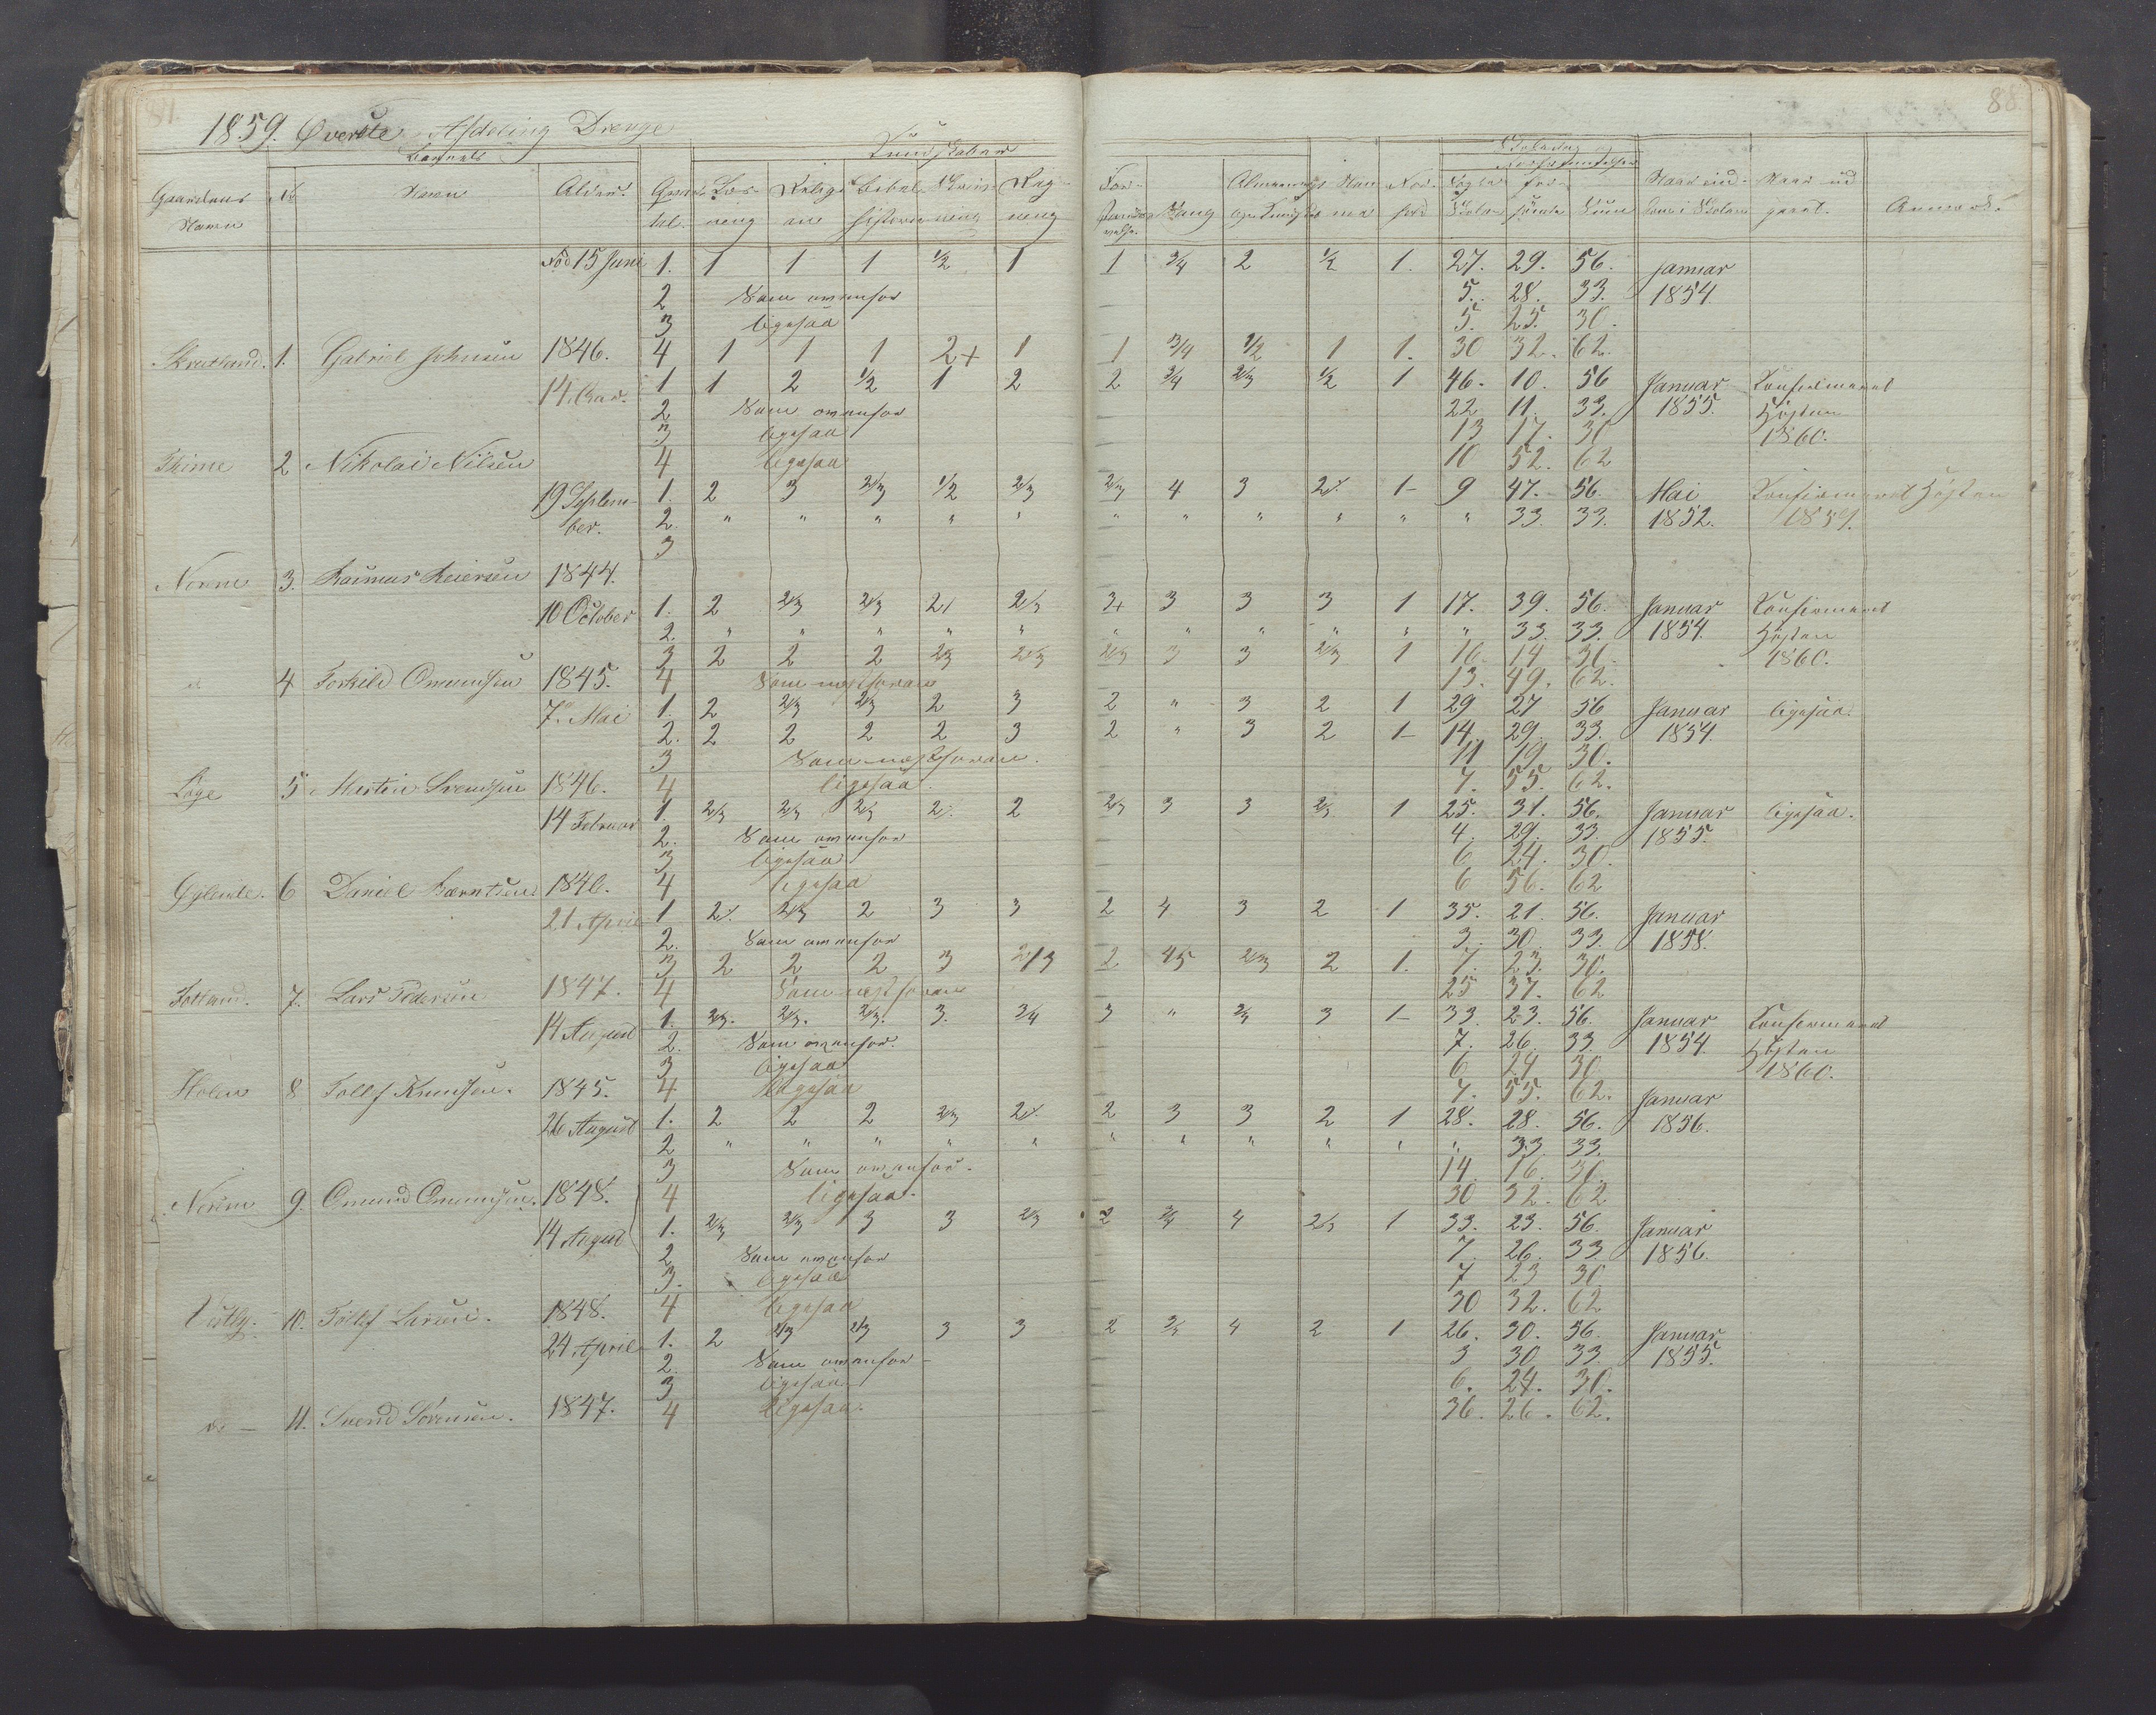 88
1859. Øverste Afdeling Drenge
Barnets Kundskaber Skoledage
Gaardens Navn № Navn Alder. Læsning Religion Bibelhistorie Skrivning Regning Sang Skolen sömte Sum Naar ind- i Skolen Naar ud- gaaet. Anmærk.
Fød 15 Juni 1. 1 1 1 1/2 1 1 3/4 2 1/2 1. 27. 29. 56. Januar
2 Som ovenfor 5. 28. 33. 1854.
3 ligesaa 5. 25. 30.
1. Gabriel Johnsen 1846. 4 1 1 1 2+ 1 1 3/4 1/2 1 1. 30 32. 62.
14. 1 1 2 1/2 1 2 2 3/4 2/3 1/2 1 46. 10. 56 Januar Konfirmeret
2. Som ovenfor 22 11. 33. 1855. Hösten
3 ligesaa 13 17. 30 1860.
Thime 2 Nikolai Nilsen 4 ligesaa 10 52. 62
19 Septem- 1. 2 3 2/3 1/2 2/3 2/3 4 3 1- 9 47. 56. Mai Konfirmeret Hösten
ber. 2. " " " " " " " " " " " 33. 33. 1852. 1859.
3
3. Rasmus Reiersen 1844.
10 October 1. 2 2/3 2/3 2/3 3 3 3 1 17. 39. 56. Januar Konfirmeret
2. " " " " " " " " " " " 33. 33. 1854. Hösten
3 2 2 2 2/3 2/3 2/3 3 3 2/3 1 16. 14 30. 1860.
4 Torkild Omundsen 1845. 4 Som næstforan 13. 49. 62.
7. Mai 1. 2 2/3 2/3 2 3 2 " 3 2 1 29 27 56 Januar ligesaa.
2. 2 2 2 2 3 2 " 3 2 1- 14. 29. 33. 1854.
3 Som næstforan. 11 19. 30.
Lÿge 5 Martin Svendsen 1846. 4 ligesaa. 7. 55. 62.
14 Februar 1. 2/3 2/3 2/3 2 2/3 3 3 2/3 1 25. 31. 56. Januar ligesaa.
2. Som ovenfor 4. 29. 33. 1855.
3 ligesaa 6 24. 30.
6 Daniel Berntsen 1846. 4 ligesaa 6 56. 62
21 April 1 2/3 2 3 3 2 4 3 2 1 35. 21. 56. Januar
2. Som ovenfor 3. 30. 33. 1858.
3 2 2 2 3 2/3 2 4/5 2/3 2 1. 7. 23. 30.
Fotland. 7. Lars Pedersen 1847. 4 Som næstforan 25 37. 62
14 August 1. 2/3. 2/3. 2/3. 3. 3/4 3 " 3/4 3 1- 33. 23. 56. Januar Konfirmeret
2. Som ovenfor. 7. 26. 33. 1854. Hösten
3 ligesaa 6 24 30. 1860.
Holen 8 Tollf Knudsen. 1845. 4 ligesaa 7. 55. 62. Januar
26 August 1. 2 2 2 2/3 2 3 3 2 1 28. 28. 56. 1856.
2 " " " " " " " " " " " 33 33.
3 Som ovenfor. 14. 16. 30.
9. Omund Omundsen. 1848. 4 ligesaa. 30 32. 62
14 August 1. 2/3 2/3 3 3 2/3 2 3/4 4 2/3 1 33. 23. 56. Januar
2 Som ovenfor 7. 26. 33 1856.
3. ligesaa 7 23 30
10. Tollf Larsen. 1848. 4 ligesaa 30 32. 62
24 April 1. 2 2/3 2/3 3 3 2 4 2 1 26. 30. 56. Januar
2. Som ovenfor 3 30 33 1855.
3 ligesaa 6. 24. 30.
do — 11. Svend Sörensen. 1847. 4 ligesaa. 36. 26. 62.